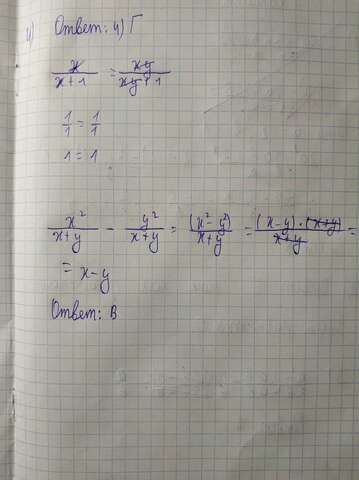 4) Ответ: 4) Г
x/(x+1) = xy/(xy+1)
1/1 = 1/1
1 = 1
x²/(x+y) - y²/(x+y) = (x²-y²)/(x+y) = (x-y)·(x+y)/(x+y) =
= x-y
Ответ: В